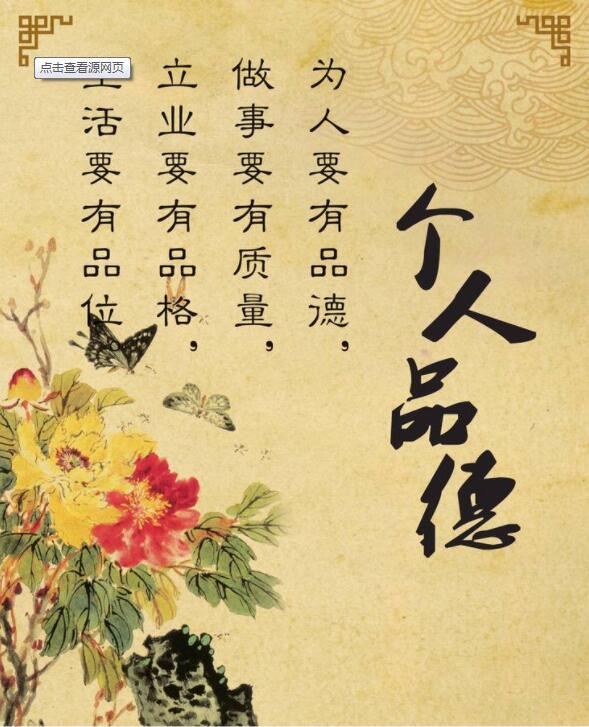 个人品德
为人要有品德，
做事要有质量，
立业要有品格，
生活要有品位。
点击查看源网页